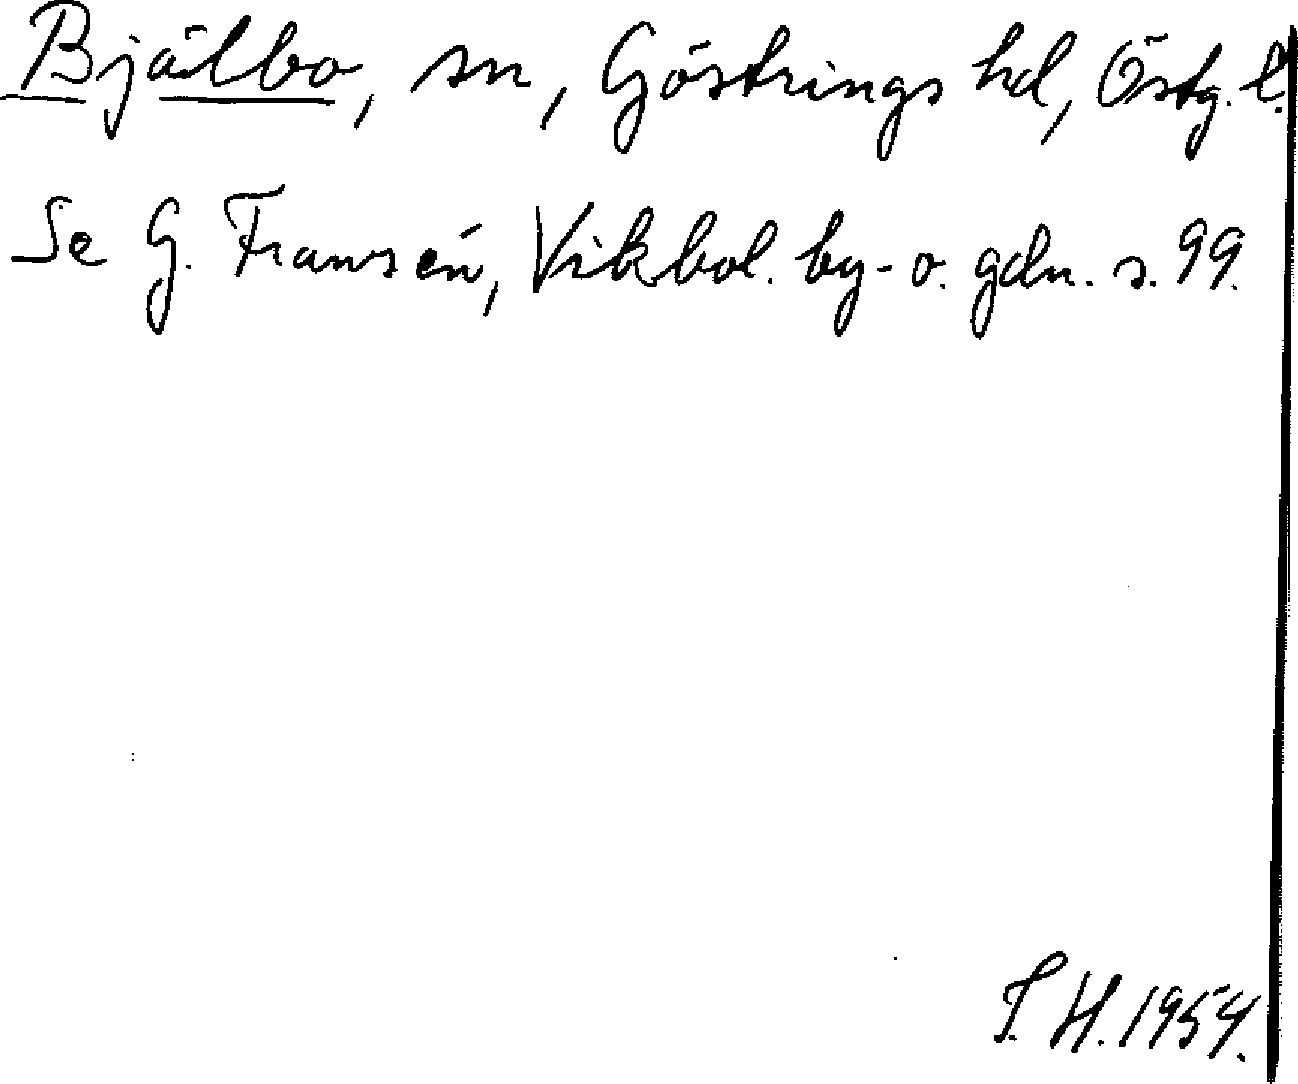 Bjälbo, sn, Göstrings hd, Östg. l.
Se G. Fransén, Vikbol. by- o. gdn. s. 99.
I. H. 1954.